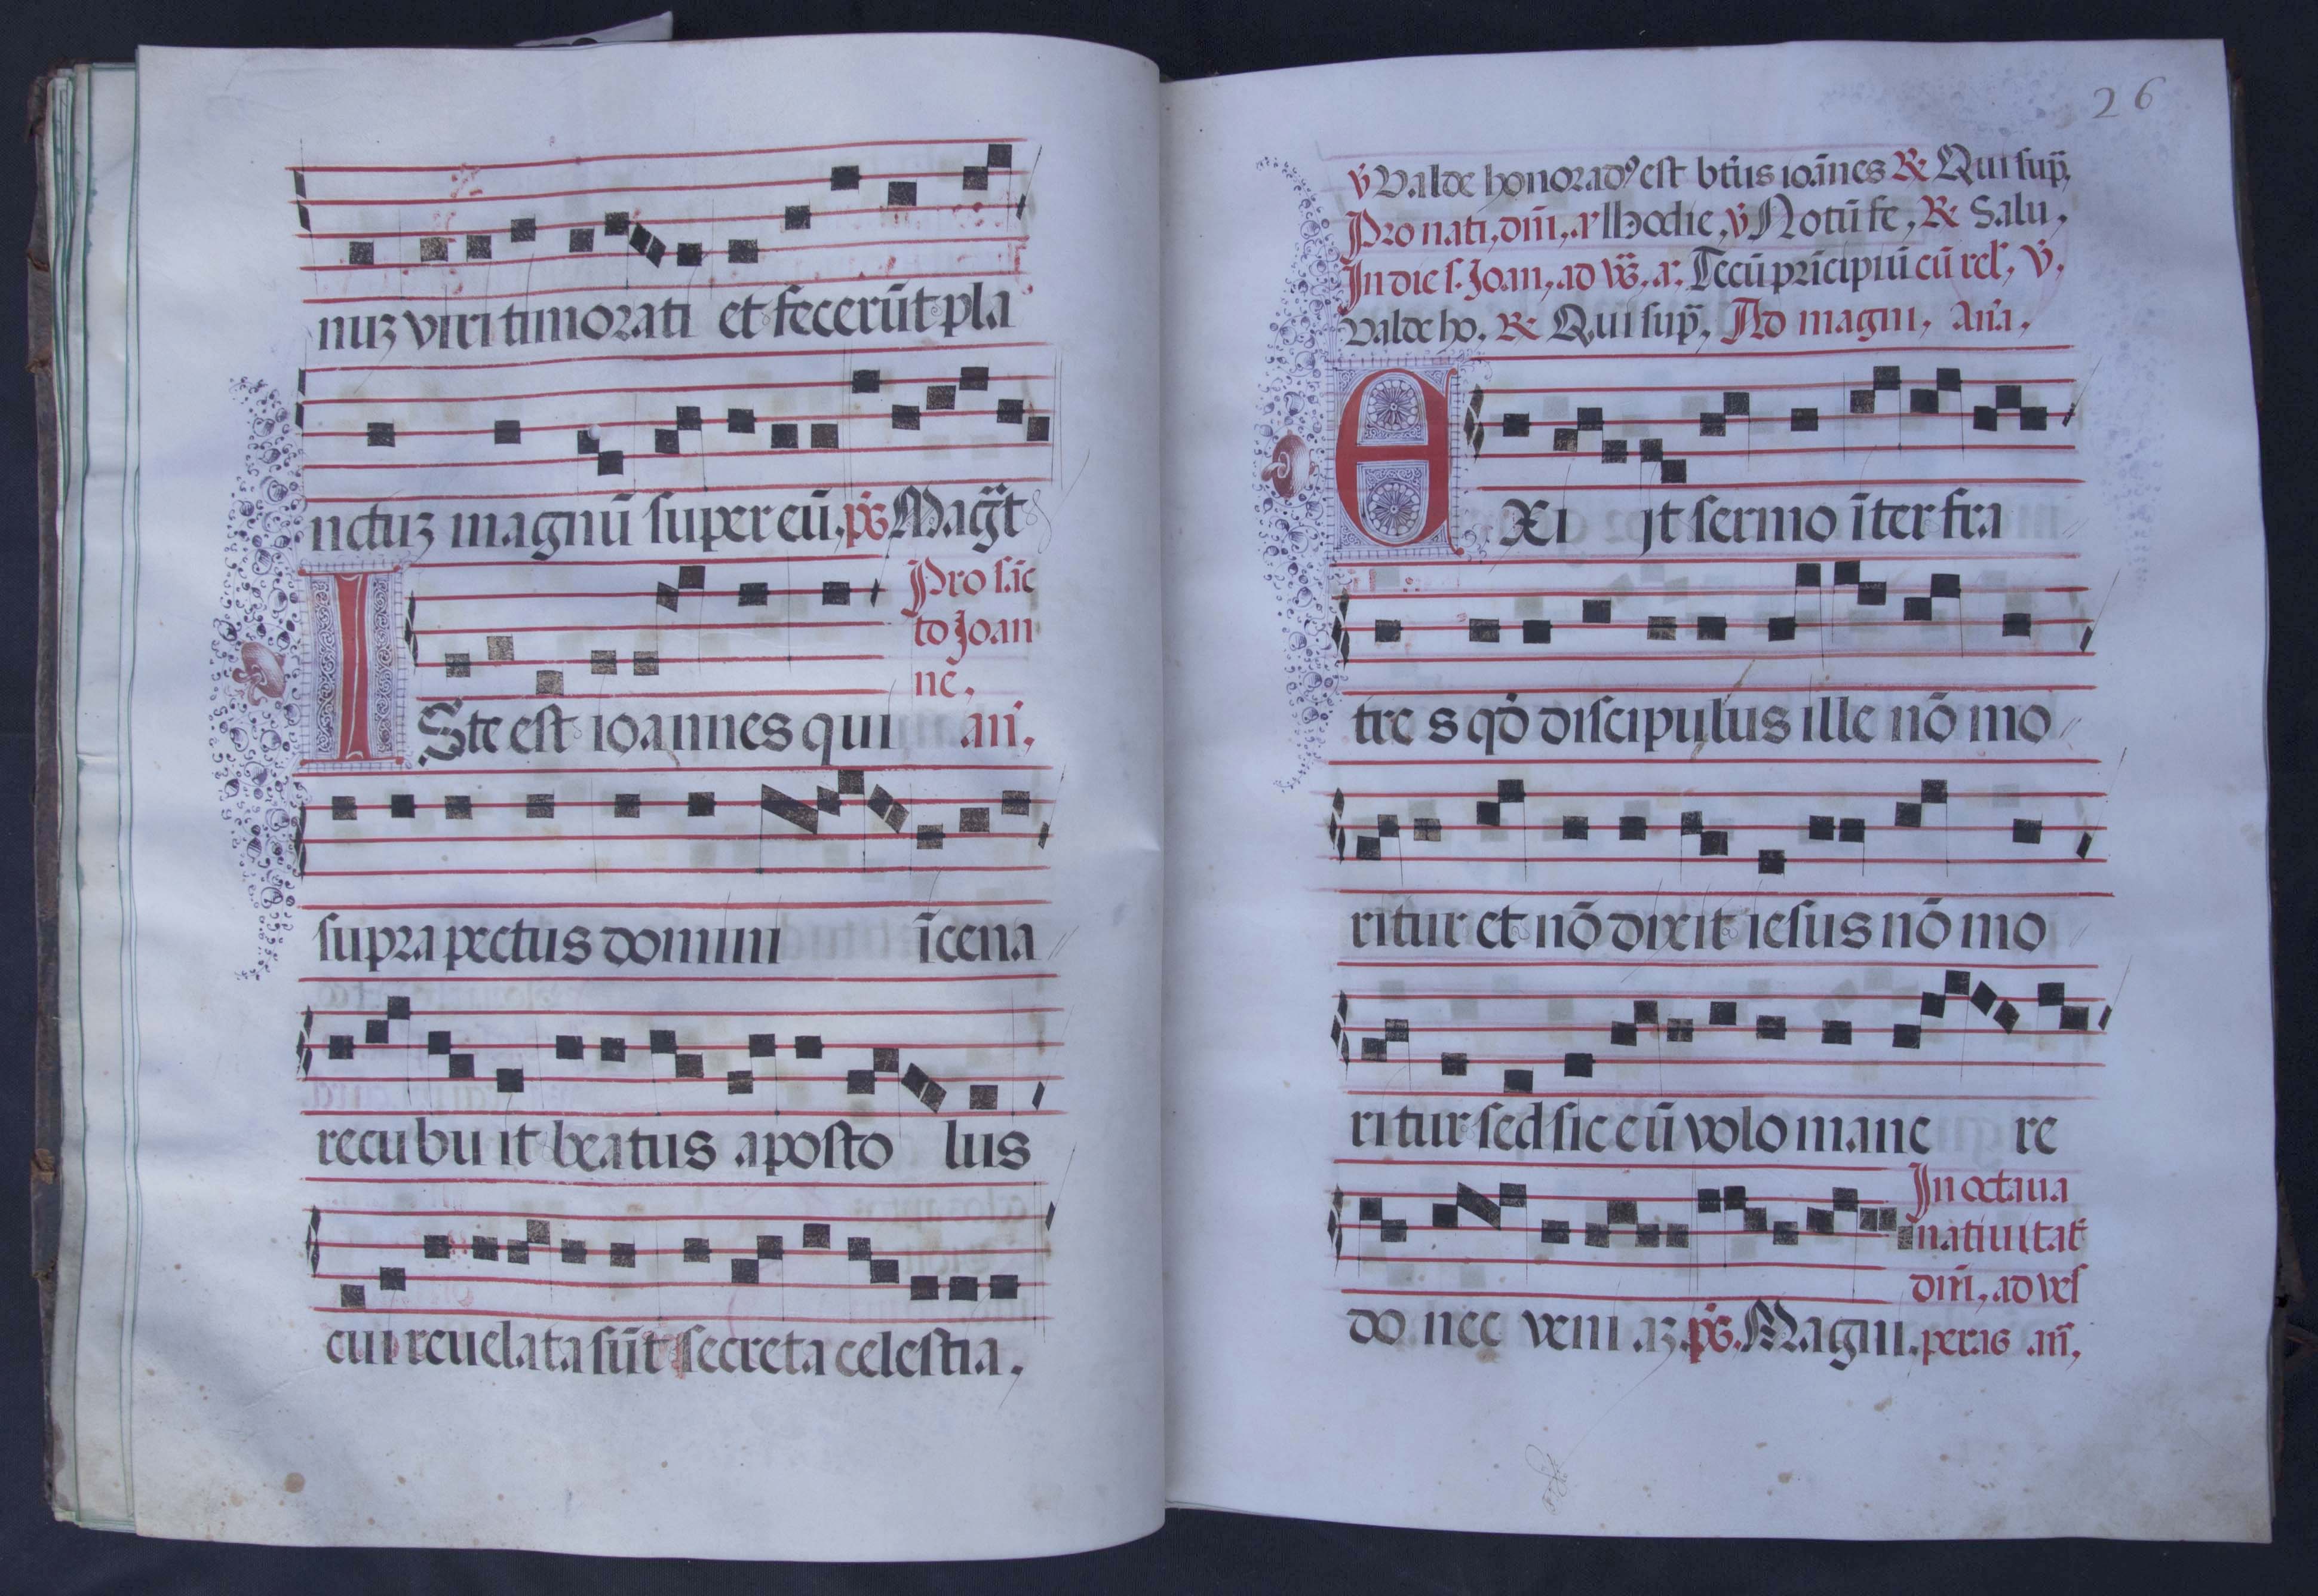 nuʒ viri timorati et fecerūt pla
nctuʒ magnū super eū. ps̄ Mag̃t
Pro s.ā̄c
to Joan
nē,
ISte est ioannes qui an̄,
supra pectus domini īcena
recubu it beatus aposto lus
cui reuelata sūt secreta celestia.
26
v̄ Valde honorād⁹ est bt̄us ioānes ℟ Qui sup̄,
Pro nati, dn̄i, ar Hodie, v̄ Notū fe, ℟ Salu,
In die s. Joan, ad vs̄, a: Tecū prīcipiū cū rel, v̄,
Valde ho, ℟ Qui sup̄, Ad magni, an̄a,
EXi jt sermo īter fra
tre s qđ discipulus ille nō mo
ritur et nō dixit iesus nō mo
ritur sed sic eū volo mane re
In octaua
natiuitat̄
dn̄i, ad ves
do nec veni aʒ. ps̄. Magni. peras an̄,